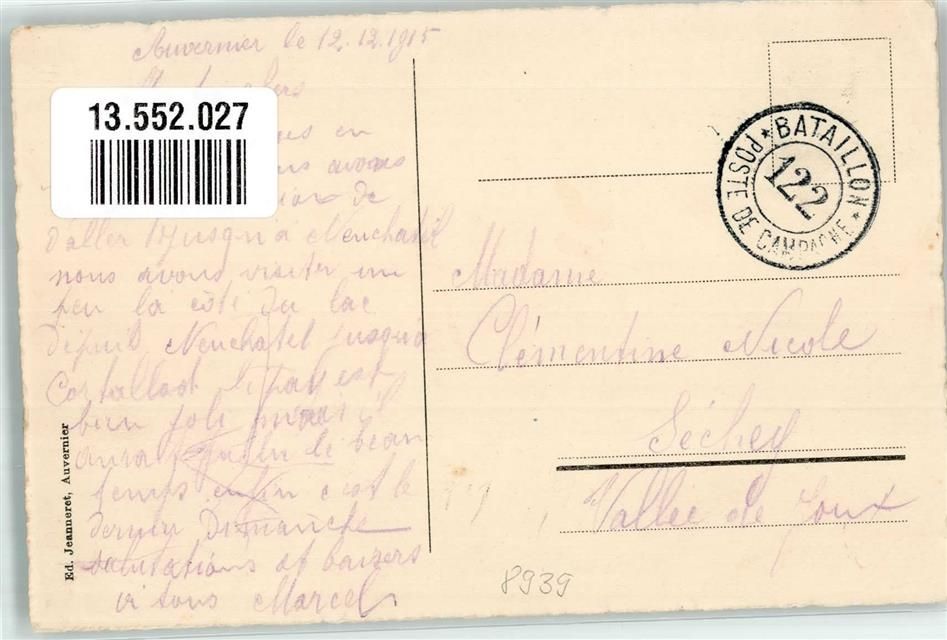 Auvernier le 12.12.1915
13.552.027
en
avons
de
d'aller jusqu'a Neuchatel
nous avons visiter un
peu la côté du lac
depuis Neuchatel jusqua
Cortallod le pays est
bien joli mais il
aurai fallu le beau
temps enfin c'est le
dernier Dimanche
salutations et baisers
a tous Marcel
Ed. Jeanneret, Auvernier
BATAILLON
122
POSTE DE CAMPAGNE
Madame
Clémentine Nicole
Séchey
Vallée de Joux
8939